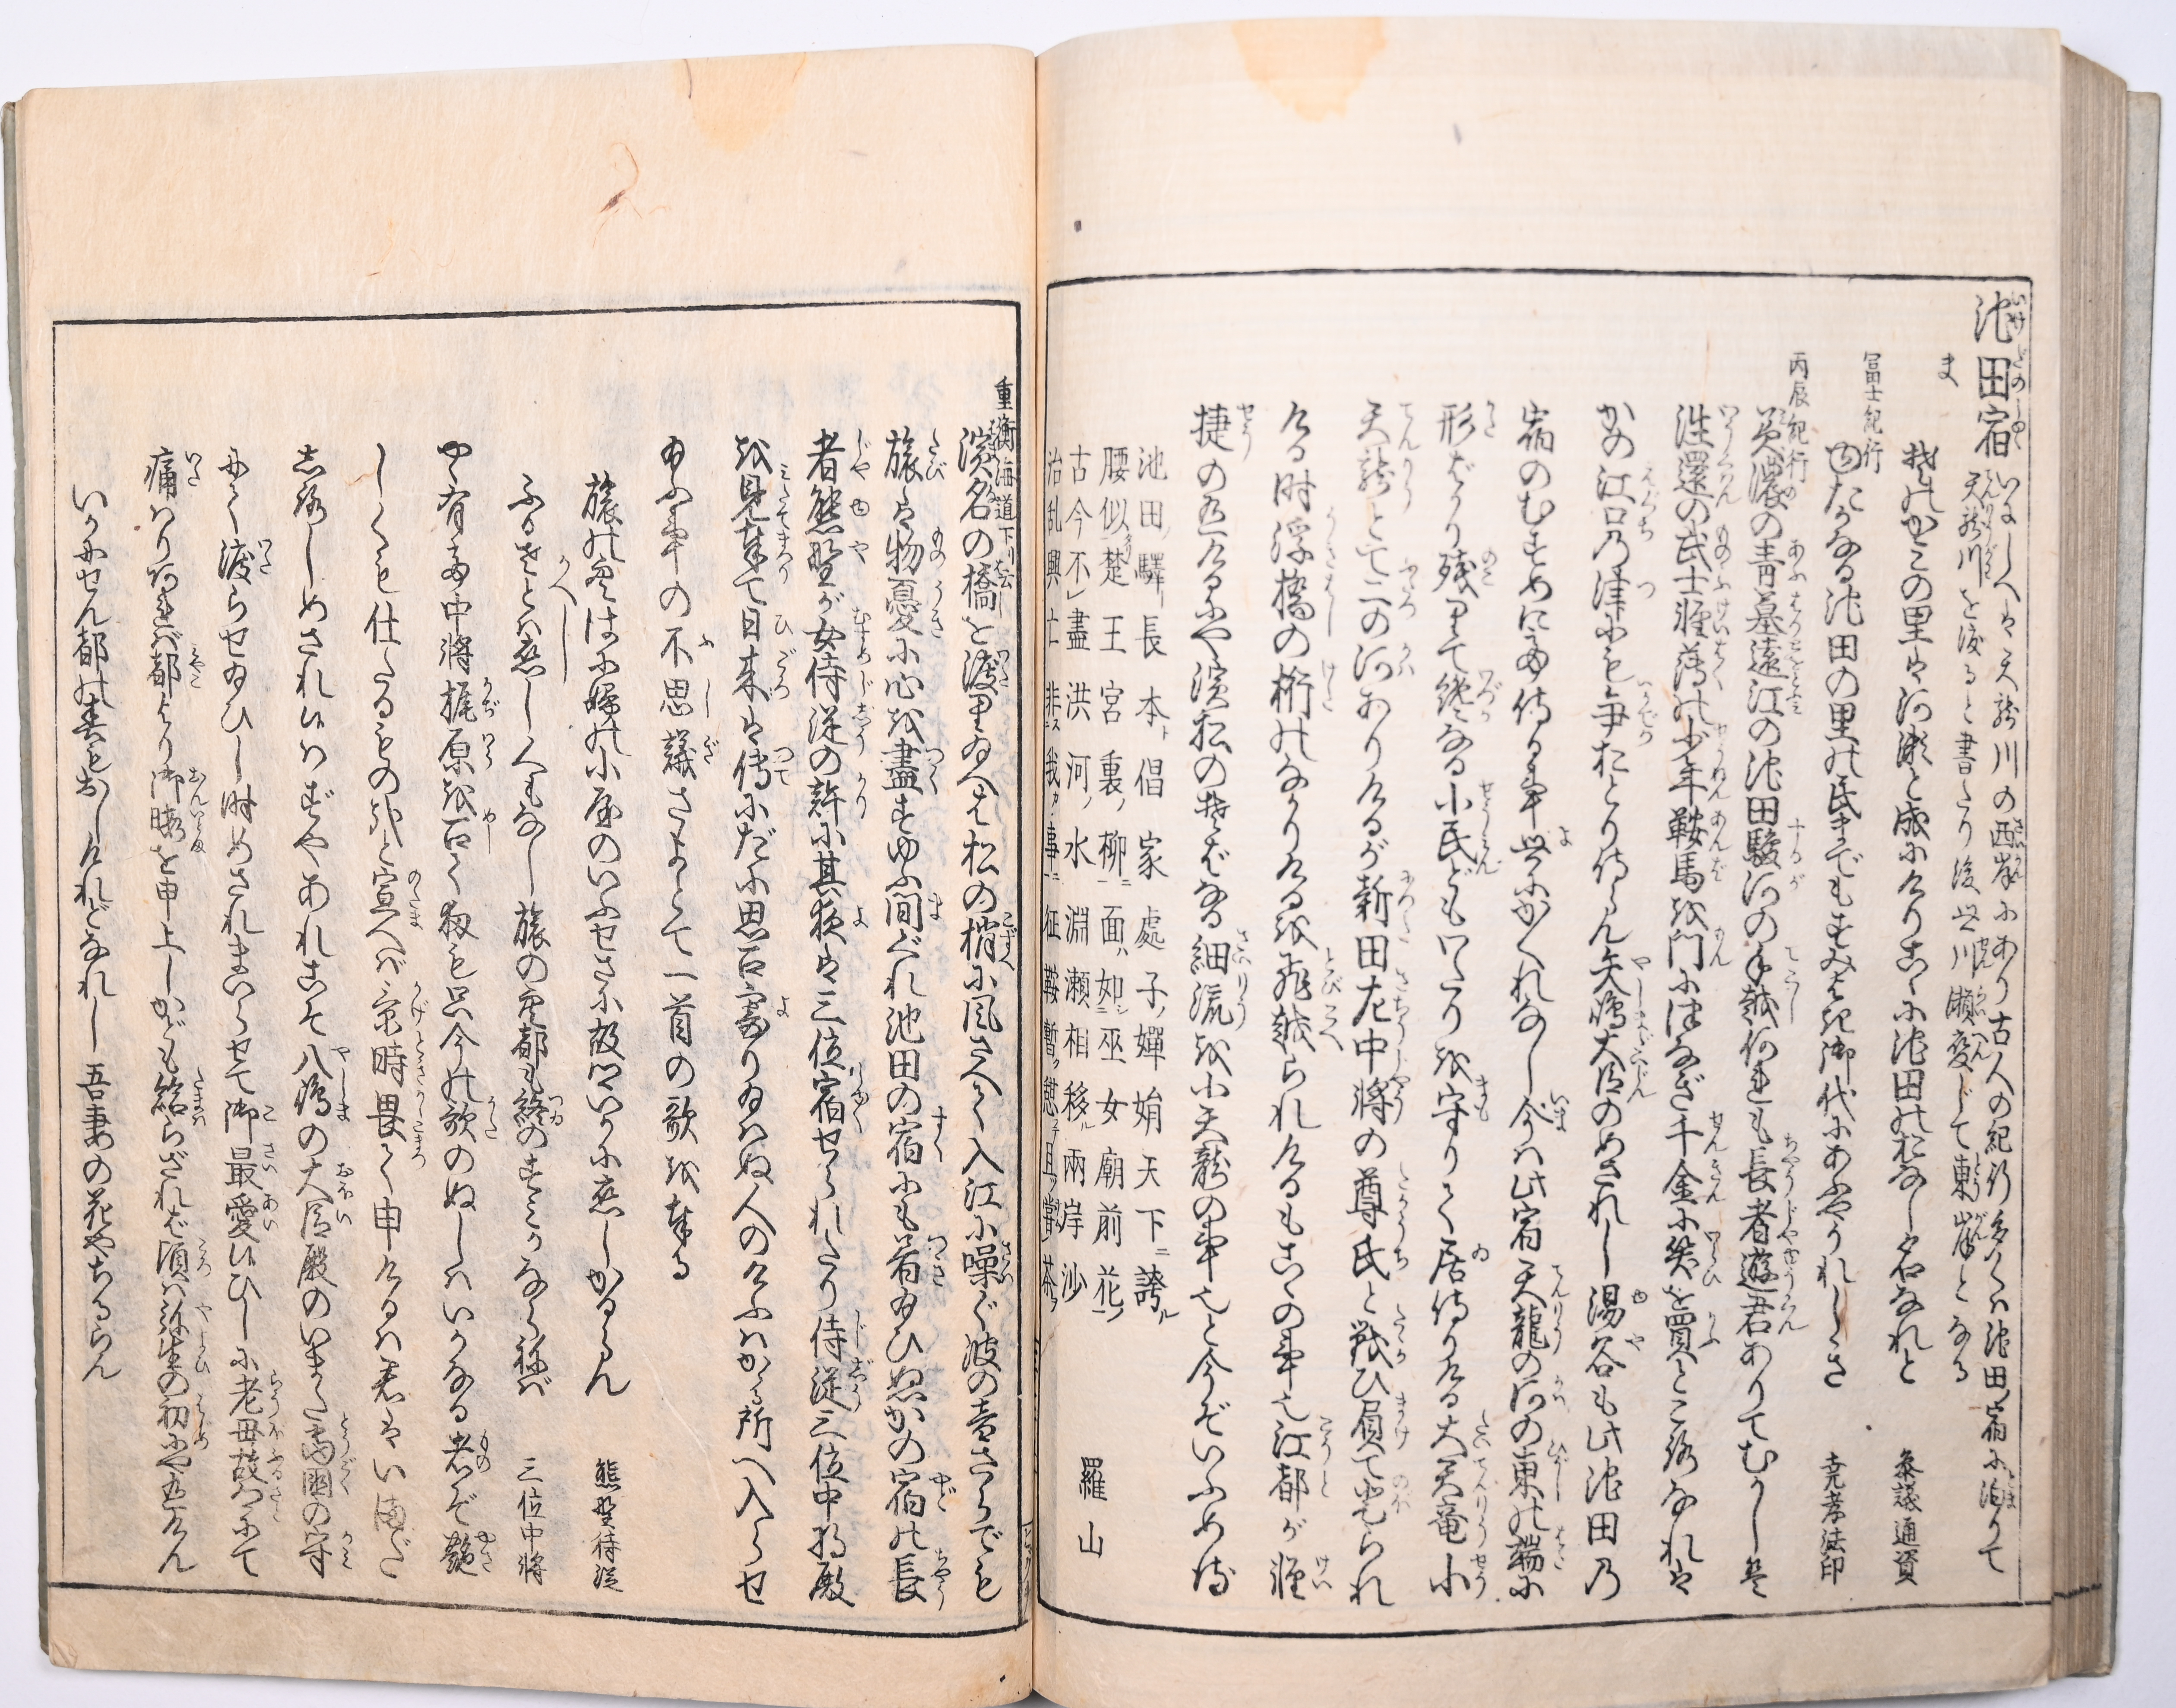 池田宿 いにしへは天龍川の西岸にあり古人の紀行多くは池田宿に泊りて
天龍川を渡ると書たり後世川瀬変じて東岸となる
我がかこの里は河瀬と成にけりこゝに池田のおなし名なれと 参議通資
冨士紀行
ゆたかなる池田の里の民までもすみよき御代にあふやうれしき 尭孝法印
丙辰紀行
美濃の青墓遠江の池田駿河の手越何れも長者遊君ありてむかしは
往還の武士軽薄の少年鞍馬を門につなぎ千金に笑を買ところなれは
かの江口乃津にも争おとり侍らん矢嶋大臣のめされし湯谷も此池田乃
宿のむすめにて侍る事世にかくれなし今は此宿天龍の河の東の端に
形ばかり残りて纔なる小民どもわたりを守りて居侍りける大天竜小
天龍とて二の河ありけるが新田左中將の尊氏と戦ひ負て登られ
ける时浮橋の桁のなかりけるを飛越られけるもこゝの事也江都が軽
捷の五けるにや濱松のそばなる細流を小天龍の事也と今ぞいふめる
池田驛長本倡家處子嬋娟天下誇
腰似楚王宮裏柳面如巫女廟前花
古今不盡洪河水淵瀬相移兩岸沙
治乱興亡非我事征鞍暫憩且嘗茶 羅山
重衡海道下り云
濱名の橋を渡り給へは松の梢に風さへて入江に噪ぐ波の音さらでも
旅は物憂に心を盡すゆふ間ぐれ池田の宿にも着給ひぬかの宿の長
者熊野が女侍従の許に其夜は三位宿せられたり侍従三位中将殿
を見奉て日来は傳にだに思召寄り給はぬ人のけふはかゝる所へ入らせ
給ふ事の不思議さよとて一首の歌を奉る
旅の空はにふの小屋のいふせさに故郷いかに恋しかるらん 熊野侍従
かへし
ふるさとは恋しくもなし旅の空都も終のすみかならねば 三位中將
やゝ有て中將梶原を召て扨も只今の歌のぬしはいかなる者ぞ艶
しくも仕たるものをと宣へば景時畏て申けるは君はいまだ
志ろしめされ候はずやあれこそ八嶋の大臣殿のいまた當國の守
にて渡らせ給ひし时めされまいらせて御最愛候ひしに老母故郷にて
痛はり候へば都より御暇を申上しかども給らざれば頃は弥生の初にや五けん
いかにせん都の春もおしけれどなれし吾妻の花やちるらん